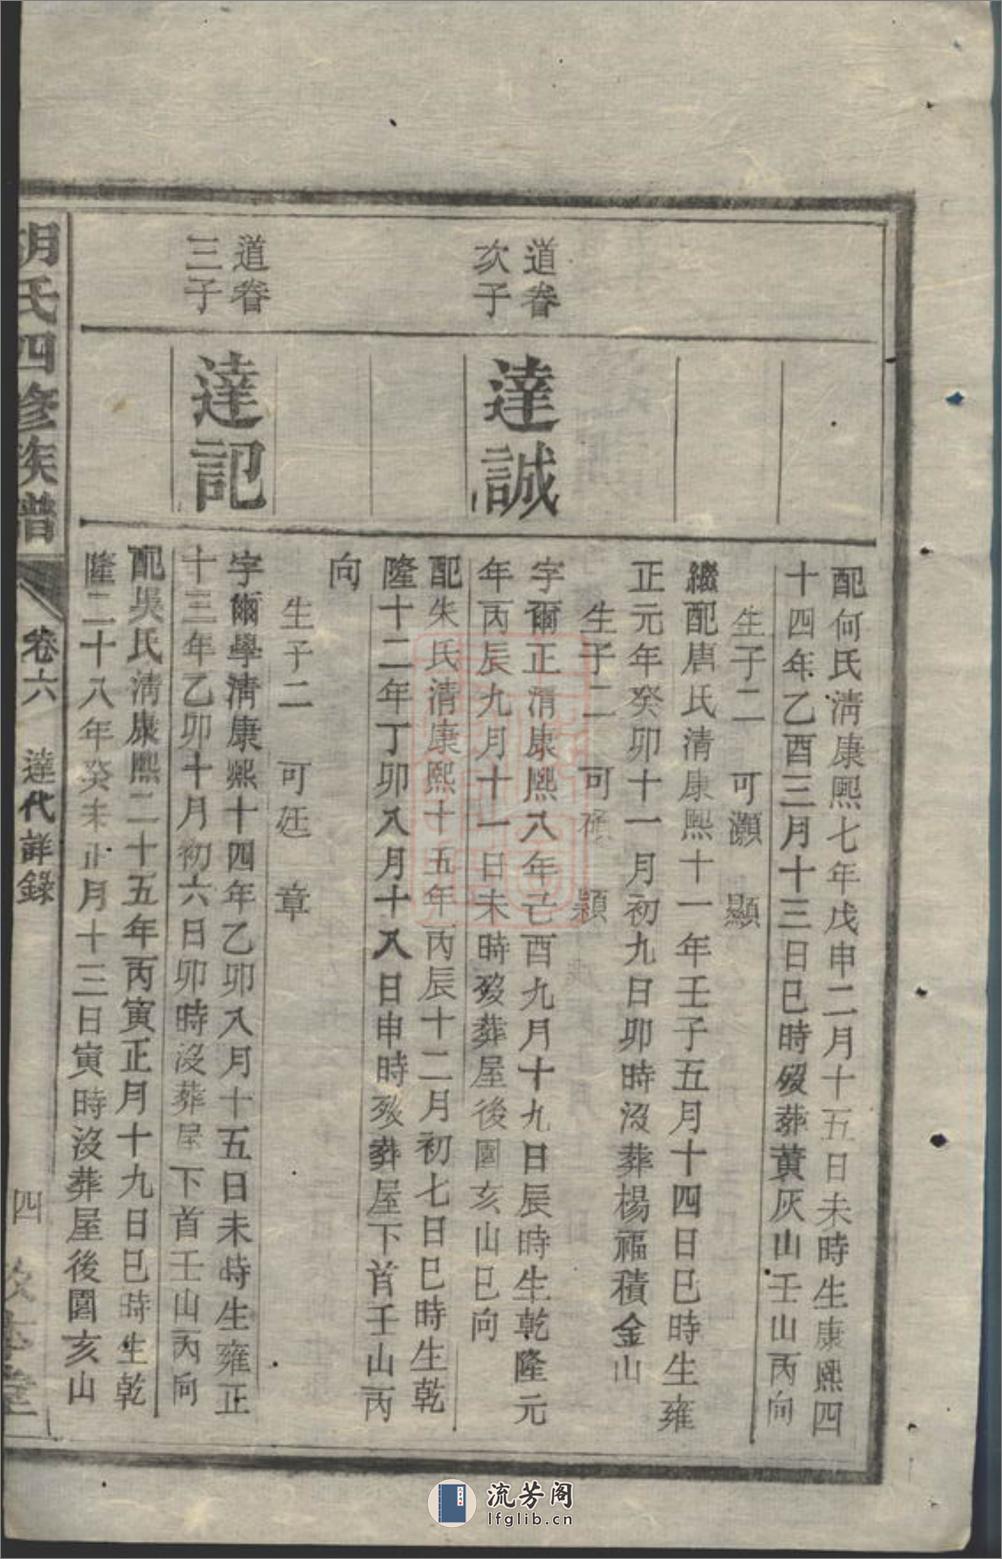 配何氏淸康熙七年戊申二月十五日未時生康熙四
十四年乙酉三月十三日巳時歿葬黃灰山壬山丙向
生子二 可灝 顯
繼配唐氏清康熙十一年壬子五月十四日巳時生雍
正元年癸卯十一月初九日卯時沒葬楊福積金山
生子二 可碩 穎
道眷
次子
達誠
字爾正清康熙八年己酉九月十九日辰時生乾隆元
年丙辰九月十一日未時歿葬屋後園亥山巳向
配朱氏清康熙十五年丙辰十二月初七日巳時生乾
隆十二年丁卯八月十八日申時歿葬屋下首壬山丙
向
生子二 可廷 章
道眷
三子
達記
字爾學淸康熙十四年乙卯八月十五日未時生雍正
十三年乙卯十月初六日卯時沒葬屋下首壬山丙向
配吳氏淸康熙二十五年丙寅正月十九日巳時生乾
隆二十八年癸未正月十三日寅時沒葬屋後園亥山
胡氏四修族譜 卷六 達代詳錄 四
流芳阁
lfglib.cn